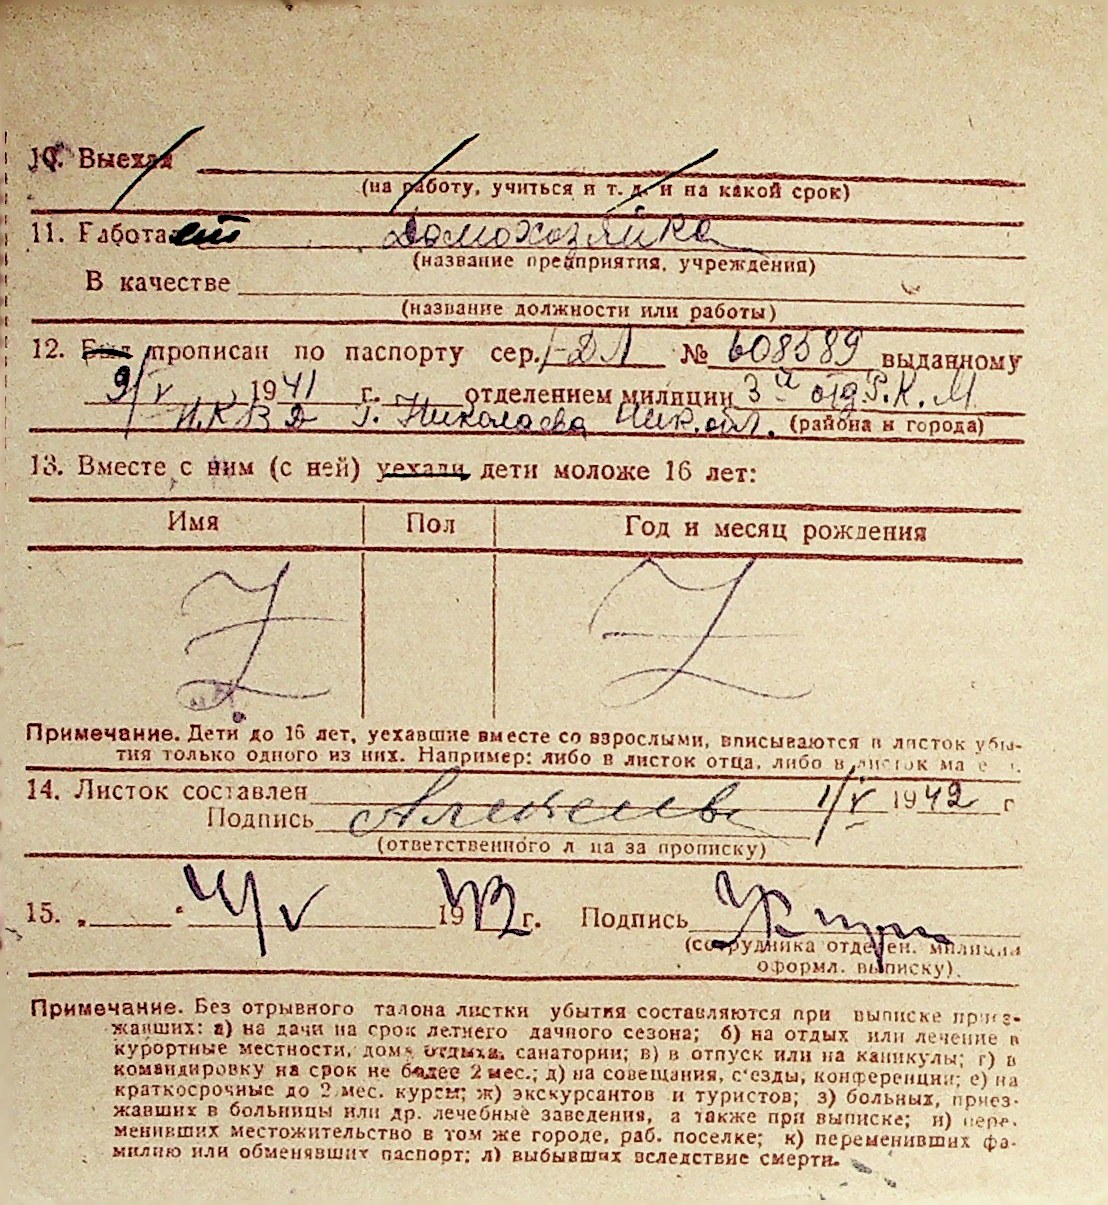 10. Выехал
(на работу, учиться и т. д. и на какой срок)
11. Работает Домохозяйка
(название предприятия, учреждения)
В качестве
(название должности или работы)
12. Был прописан по паспорту сер. I-ДЛ № 608589 выданному
9/V 1941 г. отделением милиции 3й отд. Р.К.М.
Н.К.В.Д г. Николаева Ник. обл. (района и города)
13. Вместе с ним (с ней) уехали дети моложе 16 лет:
Имя Пол Год и месяц рождения
Z Z
Примечание. Дети до 16 лет, уехавшие вместе со взрослыми, вписываются в листок убы-
тия только одного из них. Например: либо в листок отца, либо в листок ма е
14. Листок составлен 1/V 1942 г
Подпись
(ответственного л ца за прописку)
15. „ “ 4/V 1942 г. Подпись
(сотрудника отделен. милиции
оформл. выписку).
Примечание. Без отрывного талона листки убытия составляются при выписке приез-
жавших: а) на дачи на срок летнего дачного сезона; б) на отдых или лечение в
курортные местности, дома отдыха, санатории; в) в отпуск или на каникулы; г) в
командировку на срок не более 2 мес.; д) на совещания, с'езды, конференции; е) на
краткосрочные до 2 мес. курсы; ж) экскурсантов и туристов; з) больных, приез-
жавших в больницы или др. лечебные заведения, а также при выписке; и) пере-
менивших местожительство в том же городе, раб. поселке; к) переменивших фа-
милию или обменявших паспорт; л) выбывших вследствие смерти.